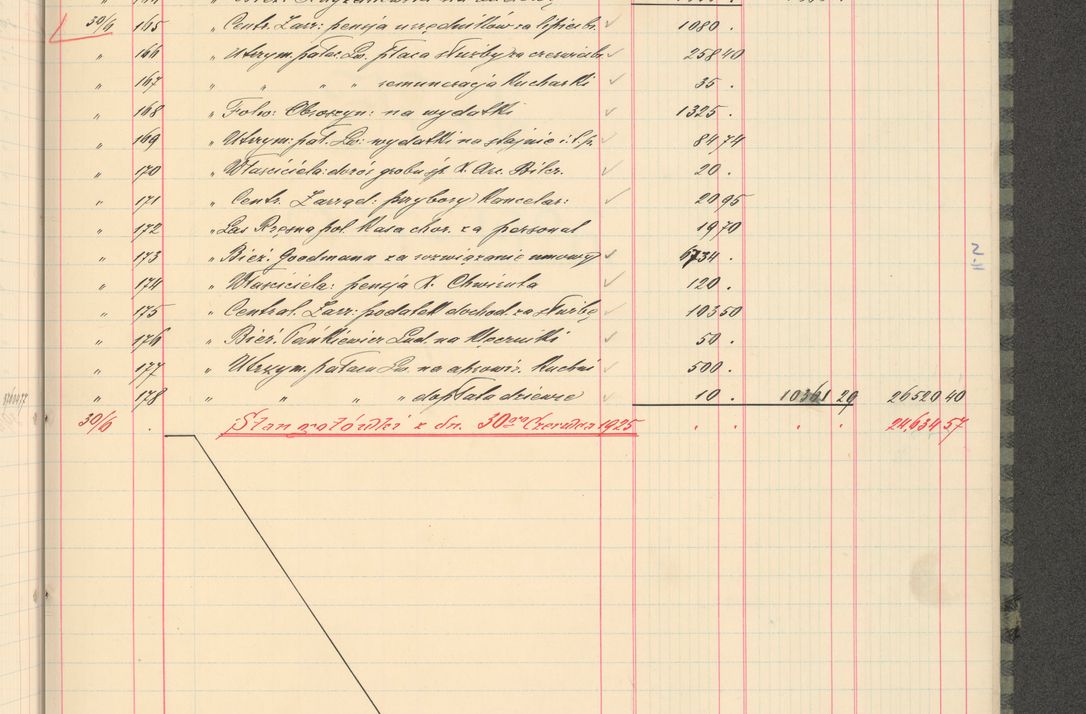 30/6 165 „ Centr. Zarz: pensja urzędników za lipiec br. 1080 .
„ 166 „ Utrzym. pałac. Lw. płaca służby za czerwiec br. 258 40
„ 167 „ „ „ „ remuneracja kucharki 35 .
„ 168 „ Folw: Obroszyn: na wydatki 1325 .
„ 169 „ Utrzym: pał. Lw: wydatki na stajnię i t. p. 84 74
„ 170 „ Właściciela: dozór grobu śp. X. Arc. Bilcz. 20 .
„ 171 „ Centr. Zarząd: przybory kancelar: 20 95
„ 172 „ Las Rzęsna pol. Kasa chor. za personal 19 70
„ 173 „ Bież. Goodmann za rozwiązanie umowy 6734 .
„ 174 „ Właściciela: pensja X. Chwiruta 120 .
„ 175 „ Central. Zarz: podatek dochod. za służbę 103 50
„ 176 „ Bież. Pańkiewicz Lud. na 50 .
„ 177 „ Utrzym. pałacu Lw. na aprowiz. kuchni 500 .
„ 178 „ „ „ „ dopłata dziewce 10 . 10361 29 26520 40
30/6 . Stan gotówki z dn. 30go Czerwca 1925 . . . . 24,634 57